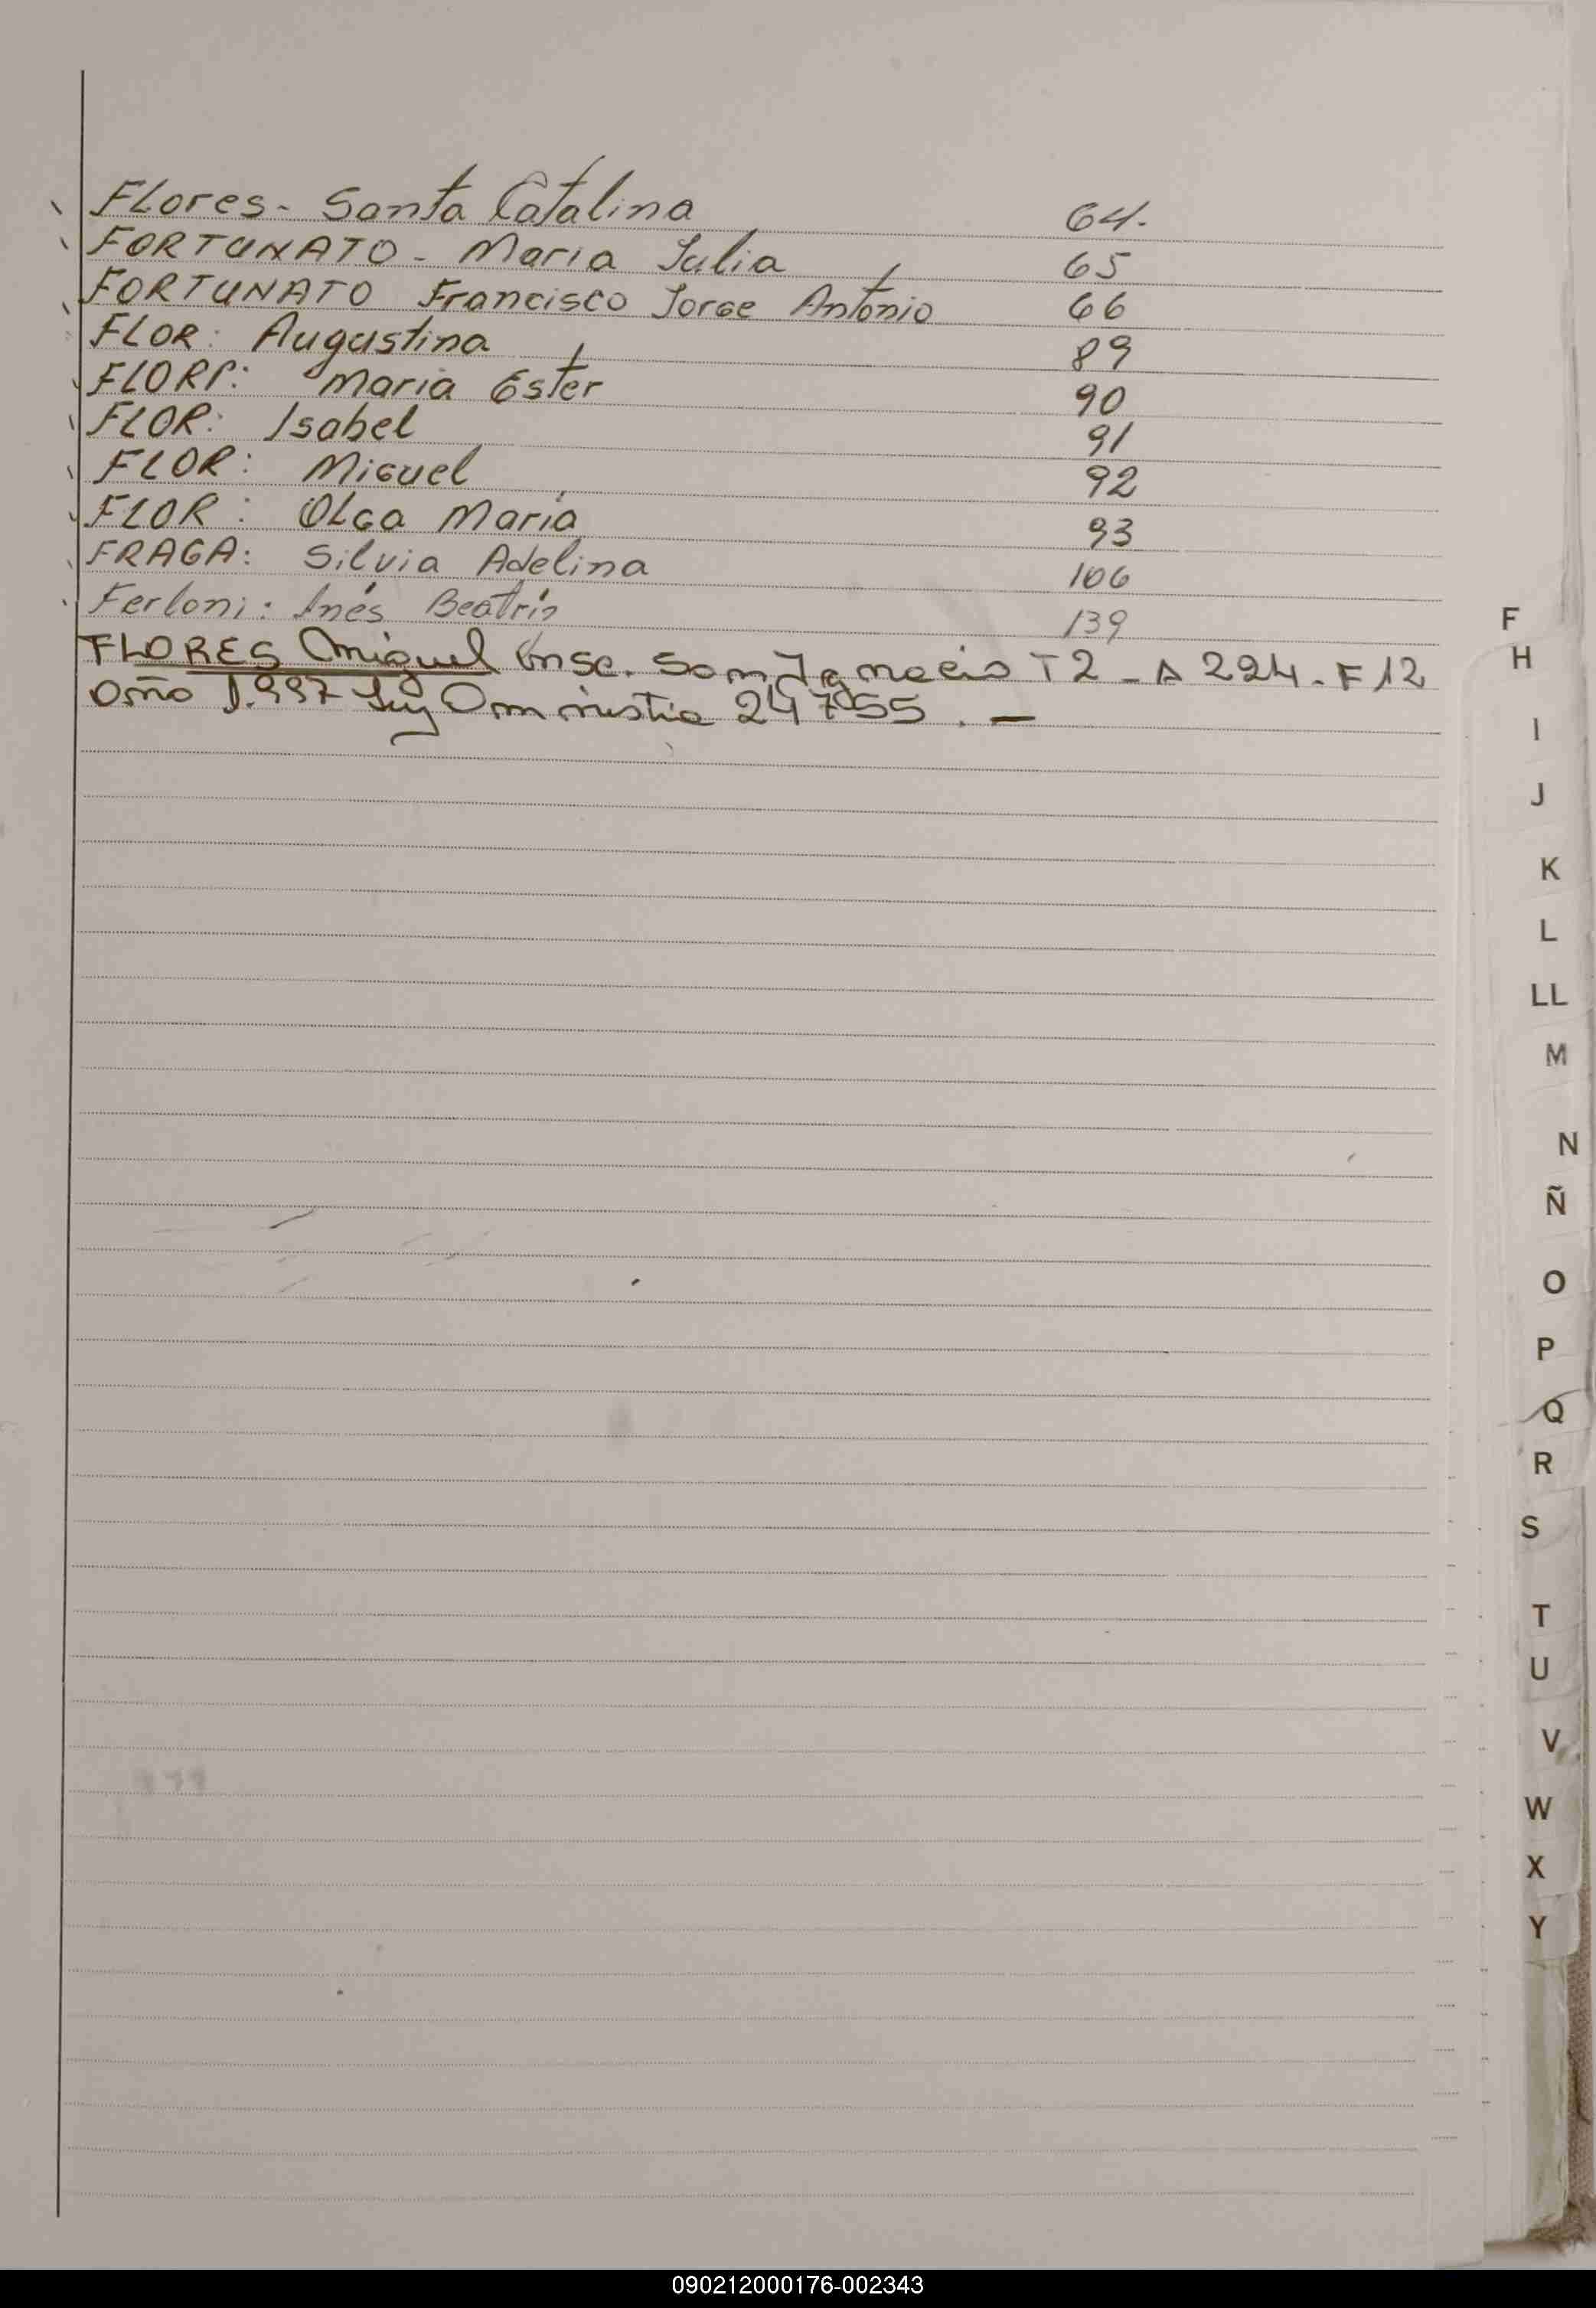 Flores - Santa Catalina 64.
FORTUNATO - Maria Julia 65
FORTUNATO Francisco Jorge Antonio 66
FLOR: Augustina 89
FLOR: Maria Ester 90
FLOR: Isabel 91
FLOR: Miguel 92
FLOR: Olga María 93
FRAGA: Silvia Adelina 106
Ferloni: Inés Beatriz 139
FLORES Miguel Insc. San Ignacio T2 - A 224 - F 12
año 1.997 Ley Amnistia 24755. -
F
H
I
J
K
L
LL
M
N
Ñ
O
P
Q
R
S
T
U
V
W
X
Y
090212000176-002343